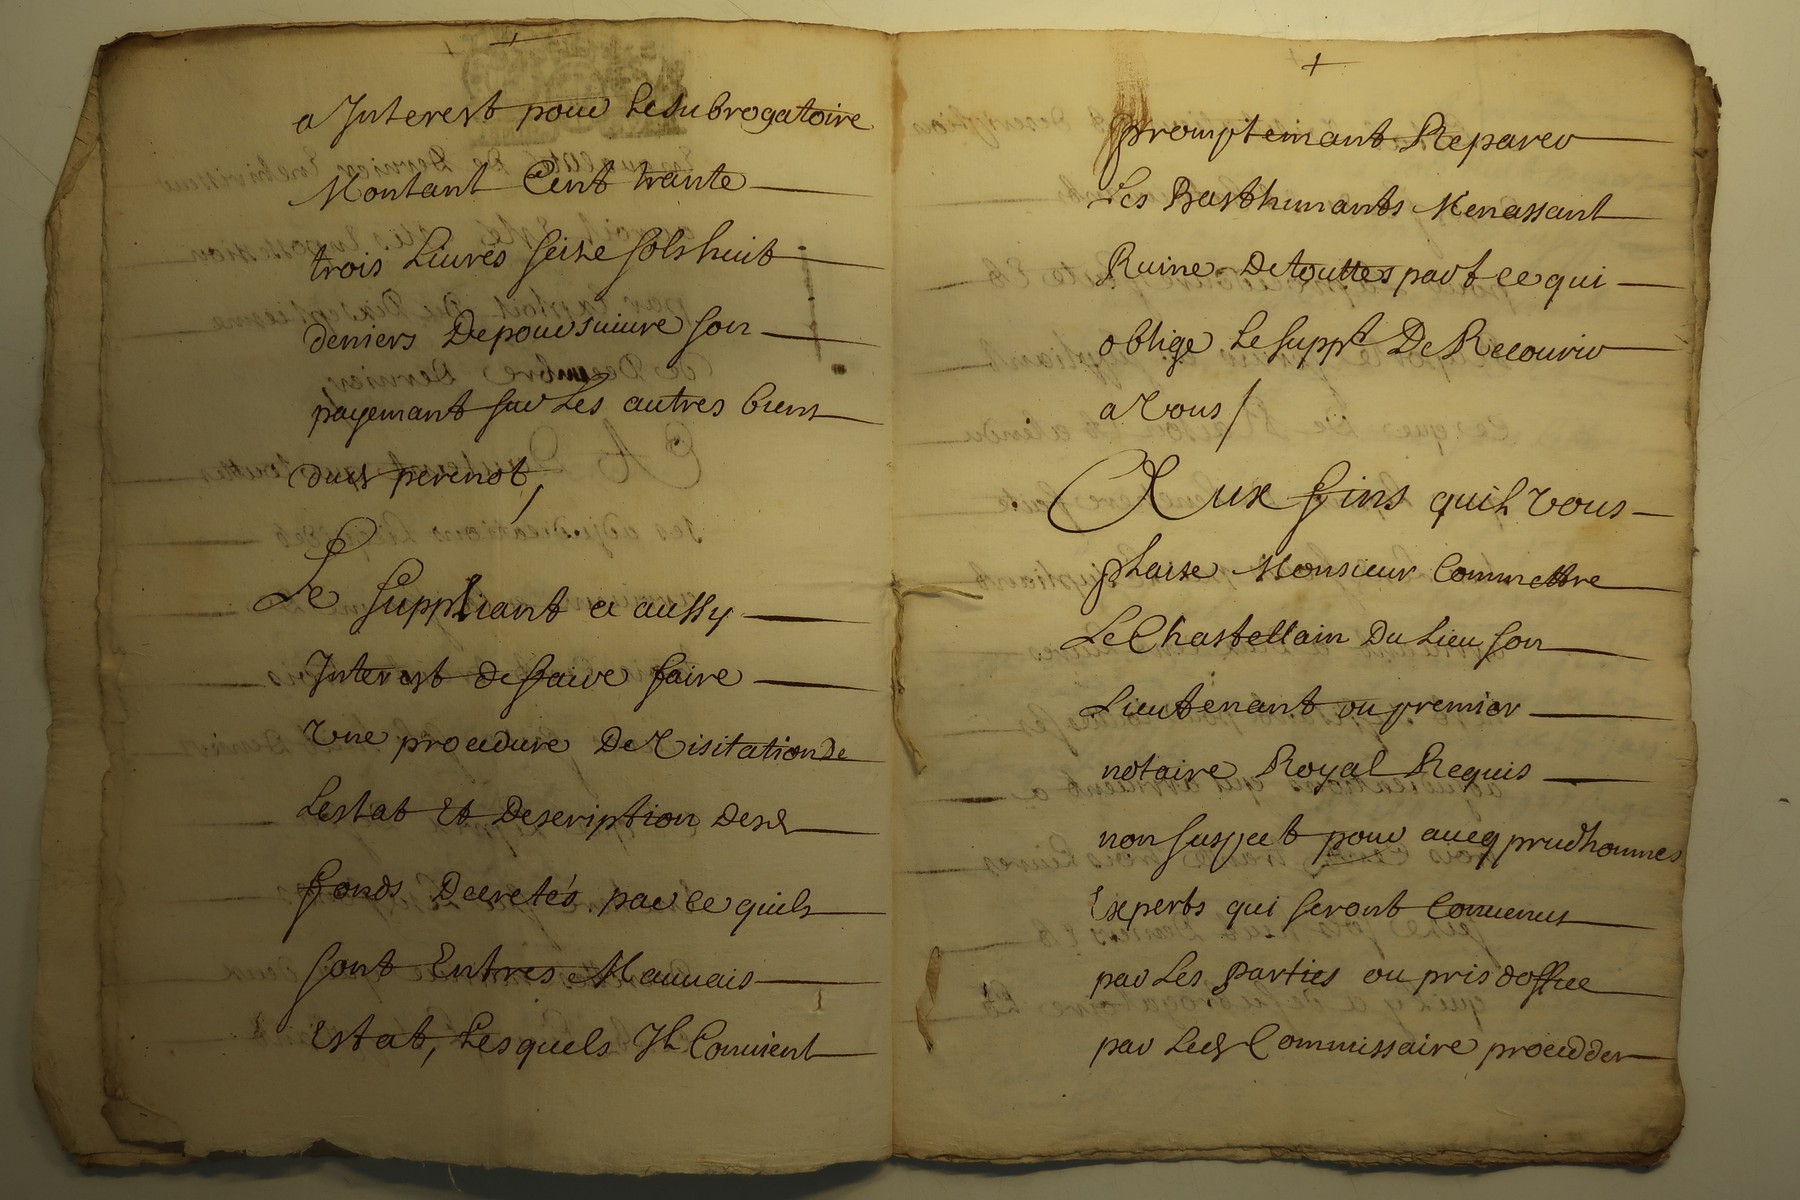 a Interest pour Lesubrogatoire
Montant Cent trante
trois Liures seize sols huit
deniers De poursuiure son
payemant sur Les autres biens
dud perenot,
Le suppliant a aussy
Interest de faire faire
Vne procedure De Visitation de
Lestat Et Description desd
fonds Decretés par ce quils
sont Entres Mauuais
Estat, Lesquels Il Conuient
promptemant Reparer
Les Basthimants Menassant
Ruine De touttes part ce qui
oblige Le suppt De Recourir
a Vous /
Aux fins quil Vous
plaise Monsieur Commettre
Le Chastellain Du Lieu son
Lieutenant ou premier
notaire Royal Requis
non suspect pour aueq prudhommes
Experts qui seront Conuenus
par Les parties ou pris doffice
par Led Commissaire procedder